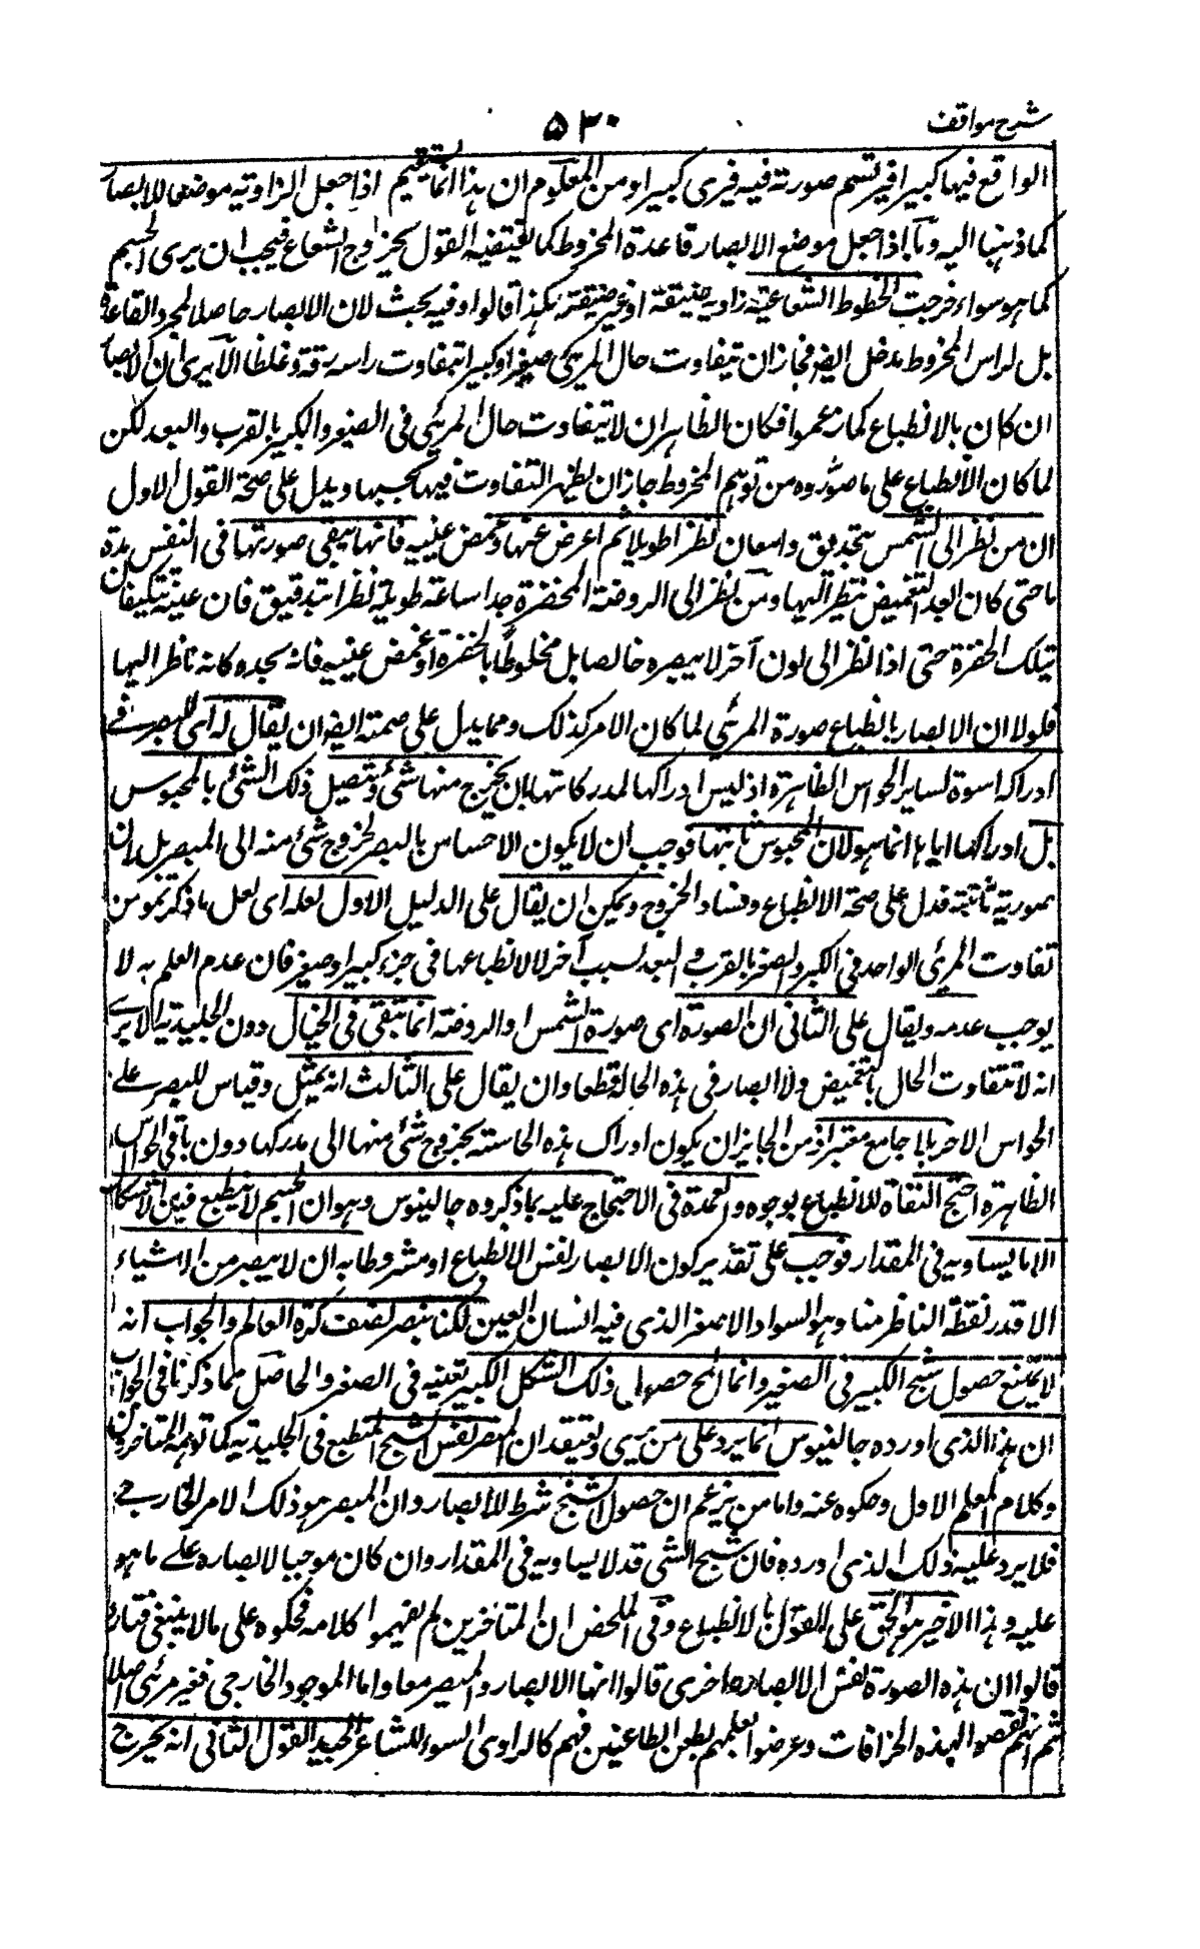 شرح مواقف
۵۳۰
الواقع فيها كبيرا فيرتسم صورته فيه فيرى كبيرا ومن المعلوم ان هذا انما يستقيم اذا جعل الزاوية موضعا للابصار
كما ذهبنا اليه واما اذا جعل موضع الابصار قاعدة المخروط كما يقتضيه القول بخروج الشعاع فيجب ان يرى الجسم
كما هو سواء خرجت الخطوط الشعاعية زاويه ضيقة او غير ضيقة هكذا قالوا وفيه بحث لان الابصار حاصلا لمجرد القاعدة
بل لراس المخروط مدخل ايضا فجاز ان يتفاوت حال المرئى صغيرا وكبيرا بتفاوت راسه رقة وغلظا الا يرى ان الابصار
ان كان بالانطباع كما زعموا فكان الظاهر ان لا يتفاوت حال المرئى فى الصغير والكبير بالقرب والبعد لكن
لما كان الانطباع على ما صوروه من توهم المخروط جاز ان يظهر التفاوت فيها بحسبها ويدل على صحة القول الاول
ان من نظر الى الشمس بتحديق وامعان نظرا طويلا ثم اعرض عنها وغمض عينيه فانها يبقى صورتها فى النفس مدة
ما حتى كان بعد التغميض ينظر اليها ومن نظر الى الروضة المخضرة جدا ساعة طويلة نظرا بتدقيق فان عينيه تتكيفان
بتلك الخضرة حتى اذا نظر الى لون آخر لا يبصره خالصا بل مخلوطا بالخضرة او غمض عينيه فانه يجده كانه ناظر اليها
فلولا ان الابصار بانطباع صورة المرئى لما كان الامر كذلك ومما يدل على صحته ايضا ان يقال له اى للبصر فى
ادراكه اسوة لساير الحواس الظاهرة اذ ليس ادراكها لمدركاتها بان يخرج منها شئ ويتصل ذلك الشئ بالمحسوس
بل ادراكها اياها انما هو لان المحسوس ياتيها فوجب ان لا يكون الاحساس بالبصر لخروج شئ منه الى المبصر بل بان
صورته تاتيه فدل على صحة الانطباع وفساد الخروج ويمكن ان يقال على الدليل الاول لعله اى لعل ما ذكرتموه من
تفاوت المرئى الواحد فى الكبر والصغر بالقرب والبعد لسبب آخر لا لانطباعها فى جزء كبير او صغير فان عدم العلم به لا
يوجب عدمه ويقال على الثانى ان الصورة اى صورة الشمس او الروضة انما تبقى فى الخيال دون الجليدية الا يرى
انه لا تتفاوت الحال بالتغميض ولا ابصار فى هذه الحالة قطعا وان يقال على الثالث انه تمثيل وقياس للبصر على
الحواس الاخر بلا جامع معتبر اذ من الجايز ان يكون ادراك هذه الحاسة بخروج شئ منها الى مدركها دون باقى الحواس
الظاهرة احتج النفاة للانطباع بوجوه والعمدة فى الاحتجاج عليه ما ذكروه جالينوس وهو ان الجسم لا ينطبع فيه من الاشكال
الا ما يساويه فى المقدار فوجب على تقدير كون الابصار لنفس الانطباع او مشروطا به ان لا يبصر من الاشياء
الا قدر نقطة الناظر منا وهو السواد الاصغر الذى فيه انسان العين لكنا نبصر نصف كرة العالم والجواب انه
لا يمتنع حصول شبح الكبير فى الصغير وانما المح حصول ذلك الشكل الكبير بعينه فى الصغر والحاصل مما ذكرنا فى الجواب
ان هذا الذى اورده جالينوس انما يرد على من يرى ويعتقد ان المبصر نفس الشبح المنطبع فى الجليدية كما توهمه المتاخرون
وكلام المعلم الاول وحكوه عنه واما من يزعم ان حصول الشبح شرط للابصار وان المبصر هو ذلك الامر الخارجى
فلا يرد عليه ذلك الذى اورده فان شبح الشى قد لا يساويه فى المقدار وان كان موجبا لابصاره على ما هو
عليه وهذا الاخير هو الحق على القول بالانطباع وفى الملخص ان المتاخرين لم يفهموا كلامه فحكوه على ما لا ينبغى فتارة
قالوا ان هذه الصورة نفس الابصار واخرى قالوا انها الابصار والمبصر معا واما الموجود الخارجى فغير مرئى اصلا
ثم انهم لهذه الخرافات وعرضوا لطعن الطاعنين فهم كالراوى السوء للشاعر الجيد القول الثانى انه يخرج